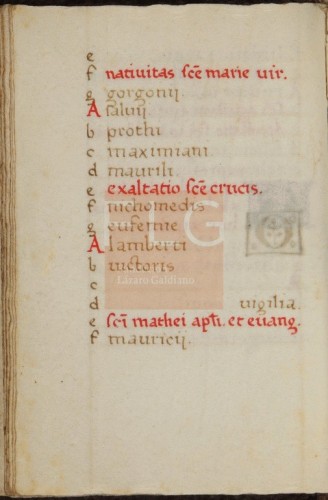 e
f natiuitas scē marie uir.
g gorgonij.
A saluij
b prothi
c maximiani
d maurili.
e exaltatio scē crucis.
f nichomedis
g eufemie
A lamberti
b uictoris
c
d uigilia.
e scī mathei apłi. et euang.
f mauricij.
FLG
Lázaro Galdiano